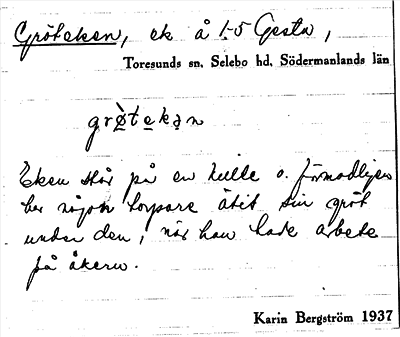 Gröteken, ek å 1-5 Gesta,
Toresunds sn, Selebo hd, Södermanlands län
grøtekən
Eken står på en kulle o. förmodligen
har någon torpare ätit sin gröt
under den, när han hade arbete
på åkern.
Karin Bergström 1937